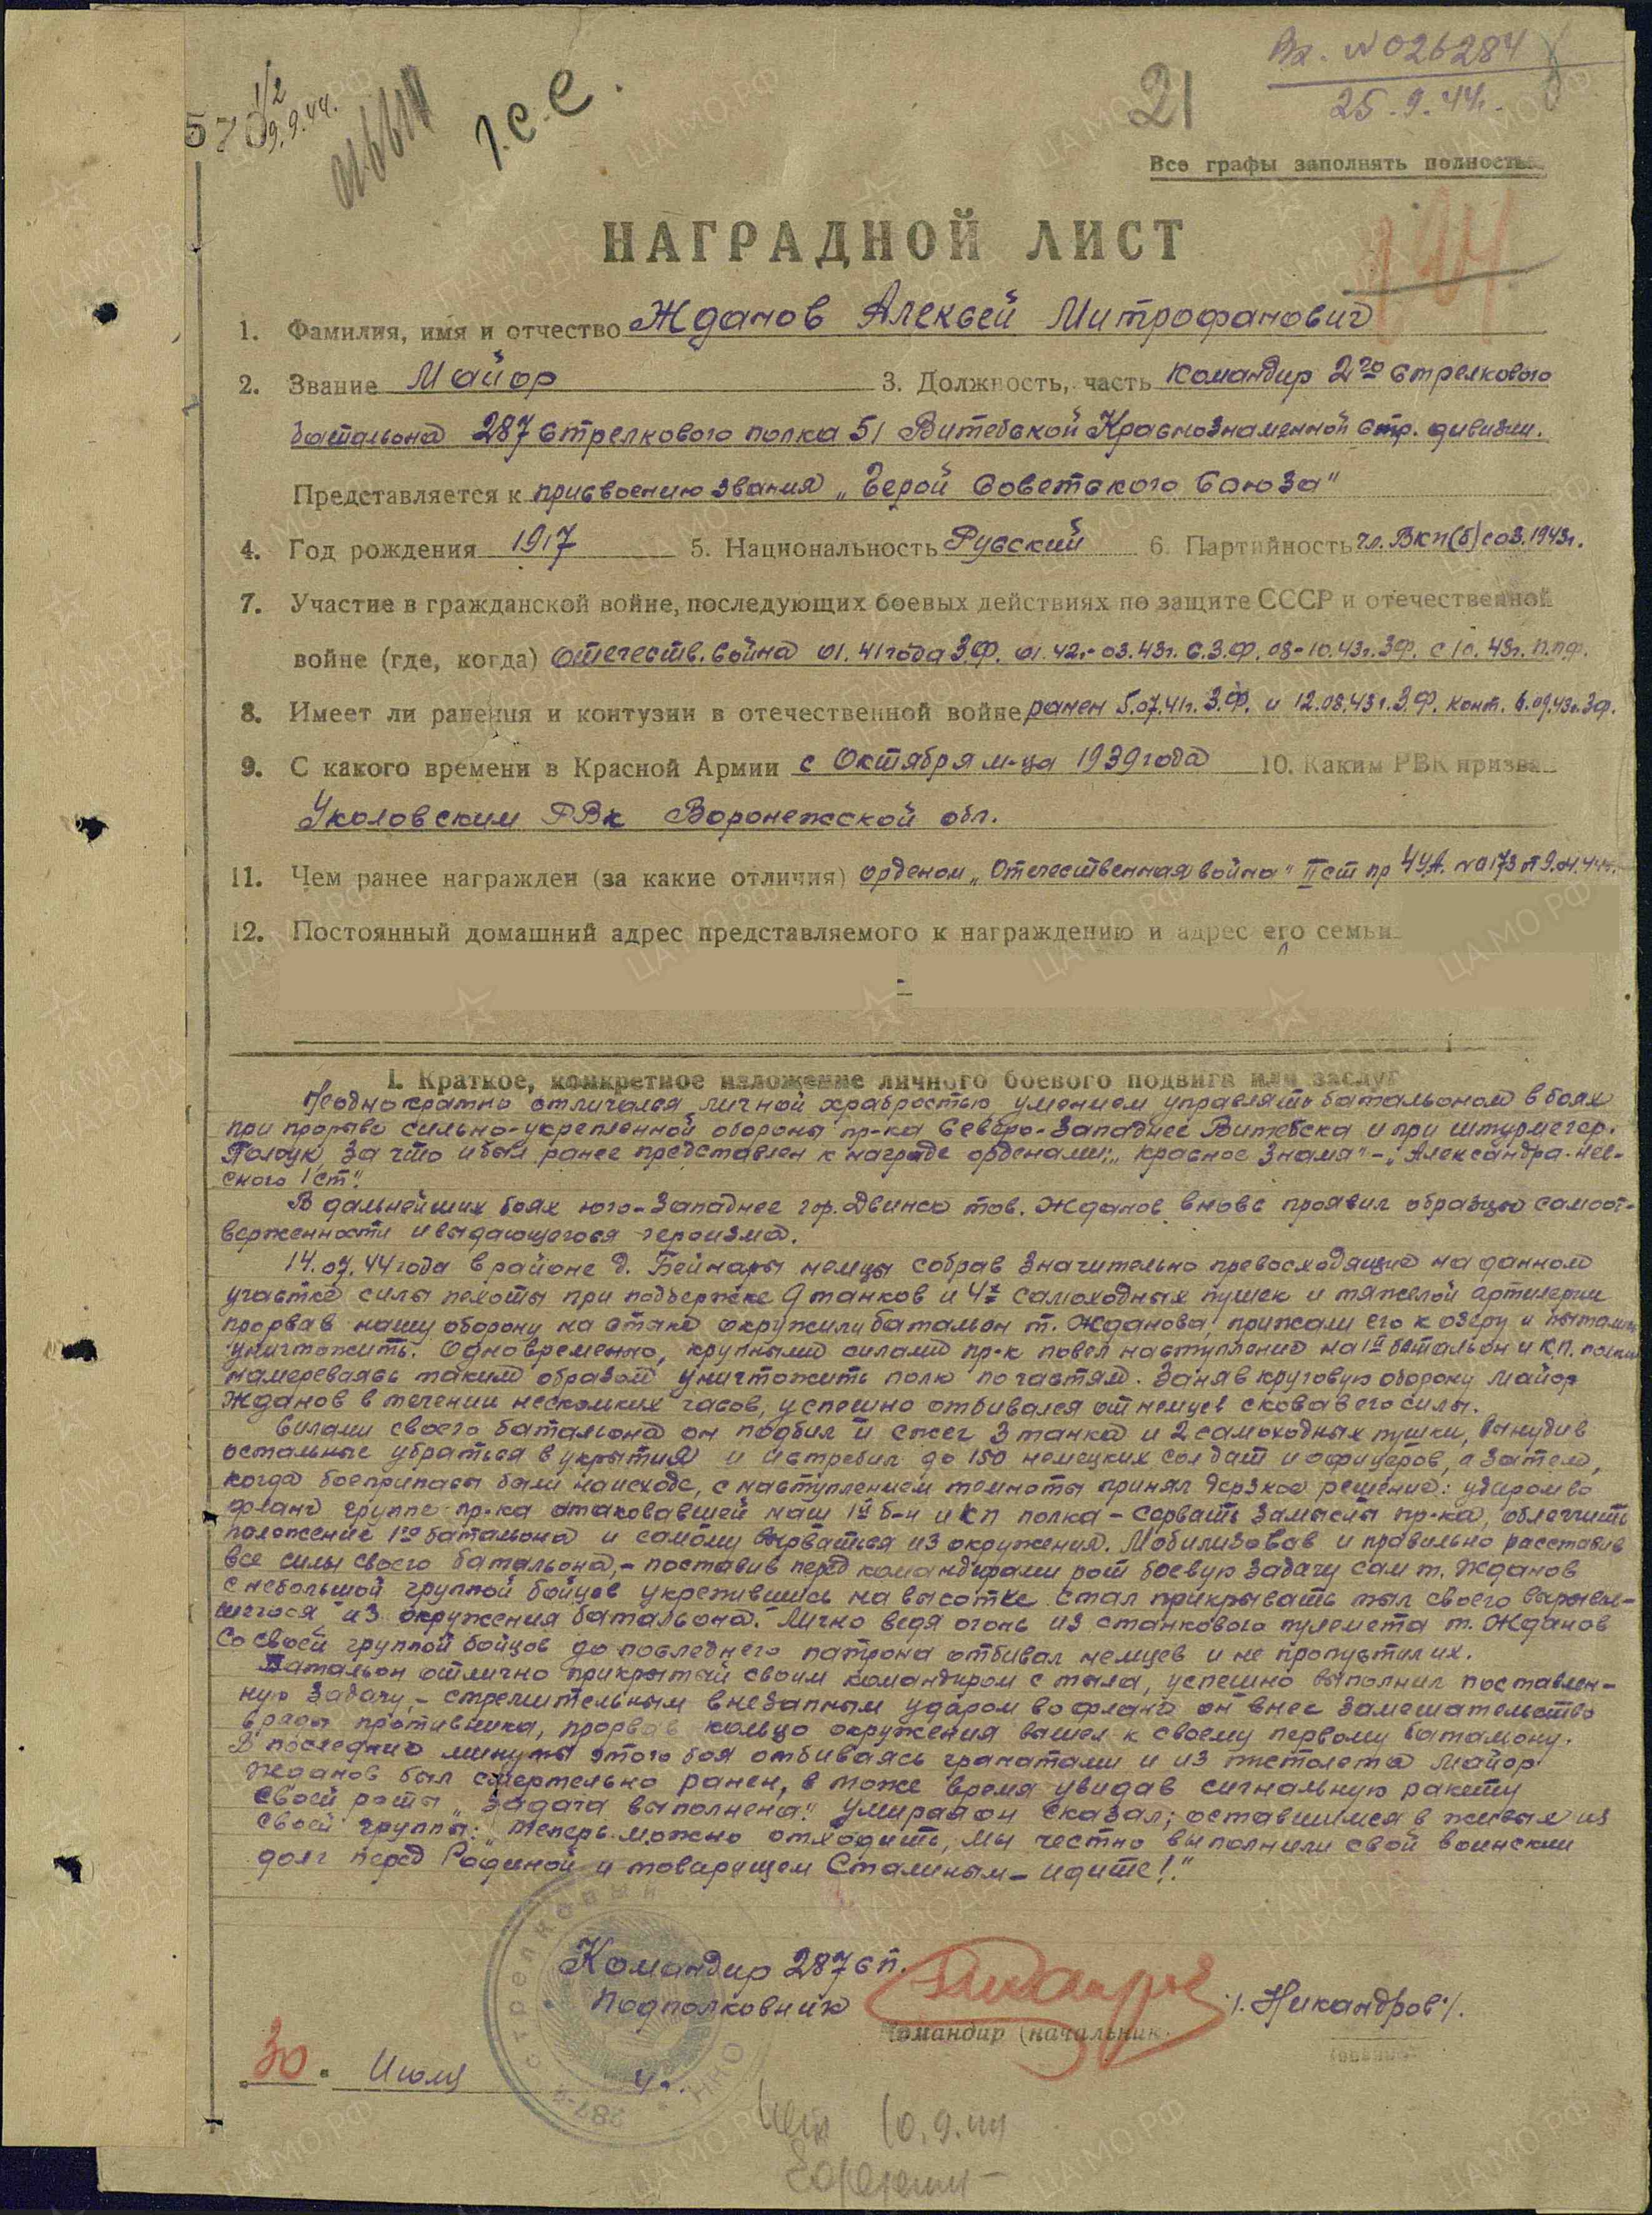 Вх. №026284
25.9.44г.
21
570
1/2
9.9.44.
г.с.с.
Все графы заполнять полностью
НАГРАДНОЙ ЛИСТ
1. Фамилия, имя и отчество Жданов Алексей Митрофанович
2. Звание Майор 3. Должность, часть командир 2го стрелкового
батальона 287 стрелкового полка 51 Витебской Краснознаменной стр. дивизии.
Представляется к присвоению звания „Герой Советского Союза"
4. Год рождения 1917 5. Национальность Русский 6. Партийность чл. ВКП(б) с 03.1943г.
7. Участие в гражданской войне, последующих боевых действиях по защите СССР и отечественной
войне (где, когда) Отечеств. война 01.41 года З.Ф. 01.42-03.43г. С.З.Ф. 08-10.43г. ЗФ. с 10.43г. П.П.Ф.
8. Имеет ли ранения и контузии в отечественной войне ранен 5.07.41г. З.Ф. и 12.08.43г. З.Ф. конт. 6.09.43г. ЗФ.
9. С какого времени в Красной Армии с Октября м-ца 1939 года 10. Каким РВК призва
Уколовским РВК Воронежской обл.
11. Чем ранее награжден (за какие отличия) орденом „Отечественная война" II ст пр 4УА. №0173 от 9.04.44г.
12. Постоянный домашний адрес представляемого к награждению и адрес его семьи
I. Краткое, конкретное изложение личного боевого подвига или заслуг
Неоднократно отличался личной храбростью умением управлять батальоном в боях
при прорыве сильно-укрепленной обороны пр-ка Северо-Западнее Витебска и при штурме гор.
Полоцк, за что и был ранее представлен к награде орденами: „Красное Знамя" – „Александра-Нев-
ского I ст".
В дальнейших боях юго-Западнее гор. Двинск тов. Жданов вновь проявил образцы самоот-
верженности и выдающегося героизма.
14.07.44 года в районе д. Бейнары немцы собрав значительно превосходящие на данном
участке силы пехоты при поддержке 9 танков и 4х самоходных пушек и тяжелой артилерии
прорвав нашу оборону на стыке окружили батальон т. Жданова, прижали его к озеру и пытались
уничтожить. Одновременно, крупными силами пр-к повел наступление на 1й батальон и К.П. полка
намереваясь таким образом уничтожить полк по частям. Заняв круговую оборону майор
Жданов в течении нескольких часов, успешно отбивался от немцев сковав его силы.
Силами своего батальона он подбил и сжег 3 танка и 2 самоходных пушки, вынудив
остальные убраться в укрытия и истребил до 150 немецких солдат и офицеров, а затем,
когда боеприпасы были на исходе, с наступлением темноты принял дерзкое решение: ударом во
фланг группе пр-ка атаковавшей наш 1й б-н и КП полка – сорвать замыслы пр-ка, облегчить
положение 1го батальона и самому вырваться из окружения. Мобилизовав и правильно расставив
все силы своего батальона, – поставив перед командирами рот боевую задачу сам т. Жданов
с небольшой группой бойцов укрепившись на высотке стал прикрывать тыл своего вырвав-
шегося из окружения батальона. Лично ведя огонь из станкового пулемета т. Жданов
со своей группой бойцов до последнего патрона отбивал немцев и не пропустил их.
Батальон отлично прикрытый своим командиром с тыла, успешно выполнил поставлен-
ную задачу, – стремительным внезапным ударом во фланг он внес замешательство
в ряды противника, прорвав кольцо окружения вышел к своему первому батальону.
В последние минуты этого боя отбиваясь гранатами и из пистолета майор
Жданов был смертельно ранен, в то же время увидав сигнальную ракету
своей роты „Задача выполнена". Умирая он сказал; оставшимся в живых из
своей группы: „Теперь можно отходить, мы честно выполнили свой воинский
долг перед Родиной и товарищем Сталиным – идите!."
Командир 287 сп.
Подполковник /. Никандров /.
Командир (начальник
30. Июля 4 г.
10.9.44